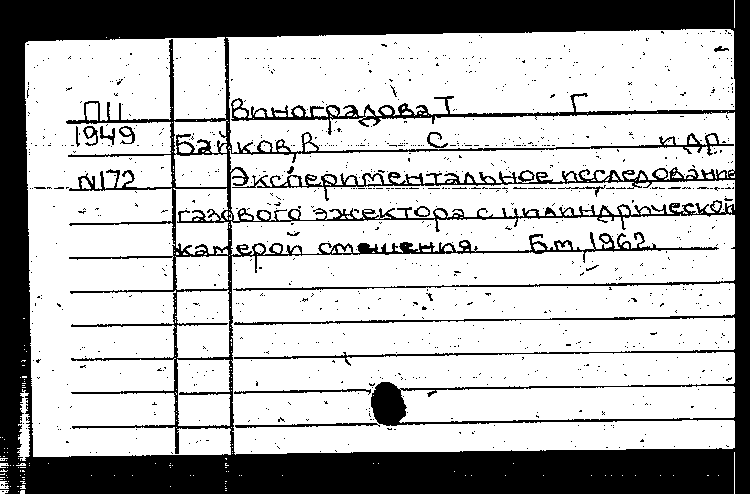 П11 Виноградова, Т Г
1949 Байков, В С и др.
N172 Экспериментальное исследование
газового эжектора с цилиндрической
камерой смешения. Б.м., 1962.